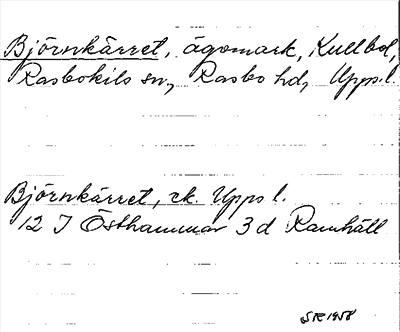 Björnkärret, ägomark, Kullbol,
Rasbokils sn, Rasbo hd, Upps.l.
Björnkärret, ek. Upps l.
12 I Östhammar 3 d Ramhäll
SR 1958